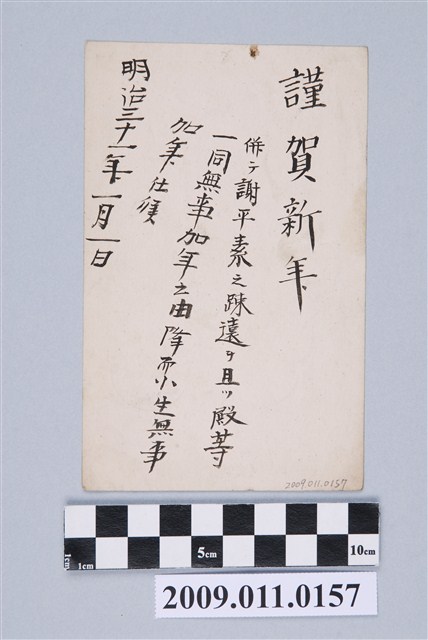 謹賀新年
併テ謝平素之疎遠ヲ且ツ殿等
一同無事加年之由降而小生無事
加年仕候
明治三十一年一月一日
2009.011.0157
1cm
1cm
5cm
10cm
2009.011.0157